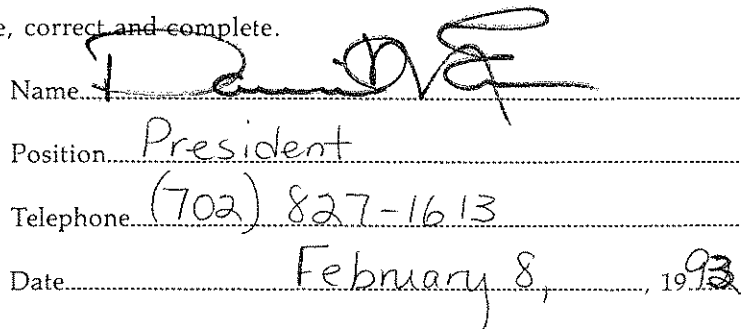 e, correct and complete.
Name
Position President
Telephone (702) 827-1613
Date February 8, , 1993